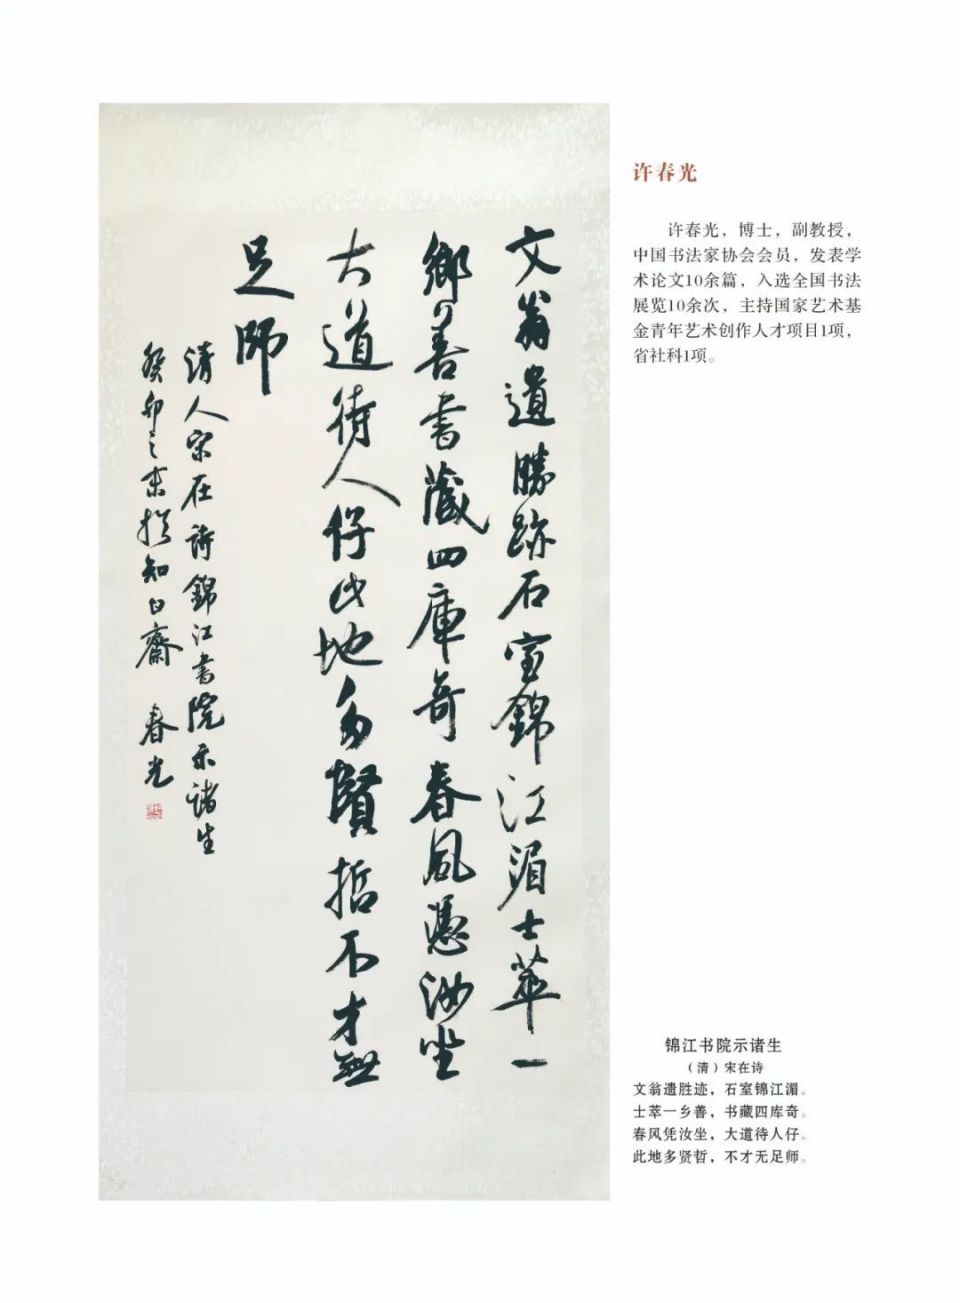 文翁遺勝跡石室錦江湄士萃一
鄉善書藏四庫奇春風憑汝坐
大道待人仔此地多賢哲不才無
足師
清人宋在诗錦江書院示諸生
癸卯之春於知白齋 春光
许春光
许春光，博士，副教授，
中国书法家协会会员，发表学
术论文10余篇，入选全国书法
展览10余次，主持国家艺术基
金青年艺术创作人才项目1项，
省社科1项。
锦江书院示诸生
（清）宋在诗
文翁遗胜迹，石室锦江湄。
士萃一乡善，书藏四库奇。
春风凭汝坐，大道待人仔。
此地多贤哲，不才无足师。